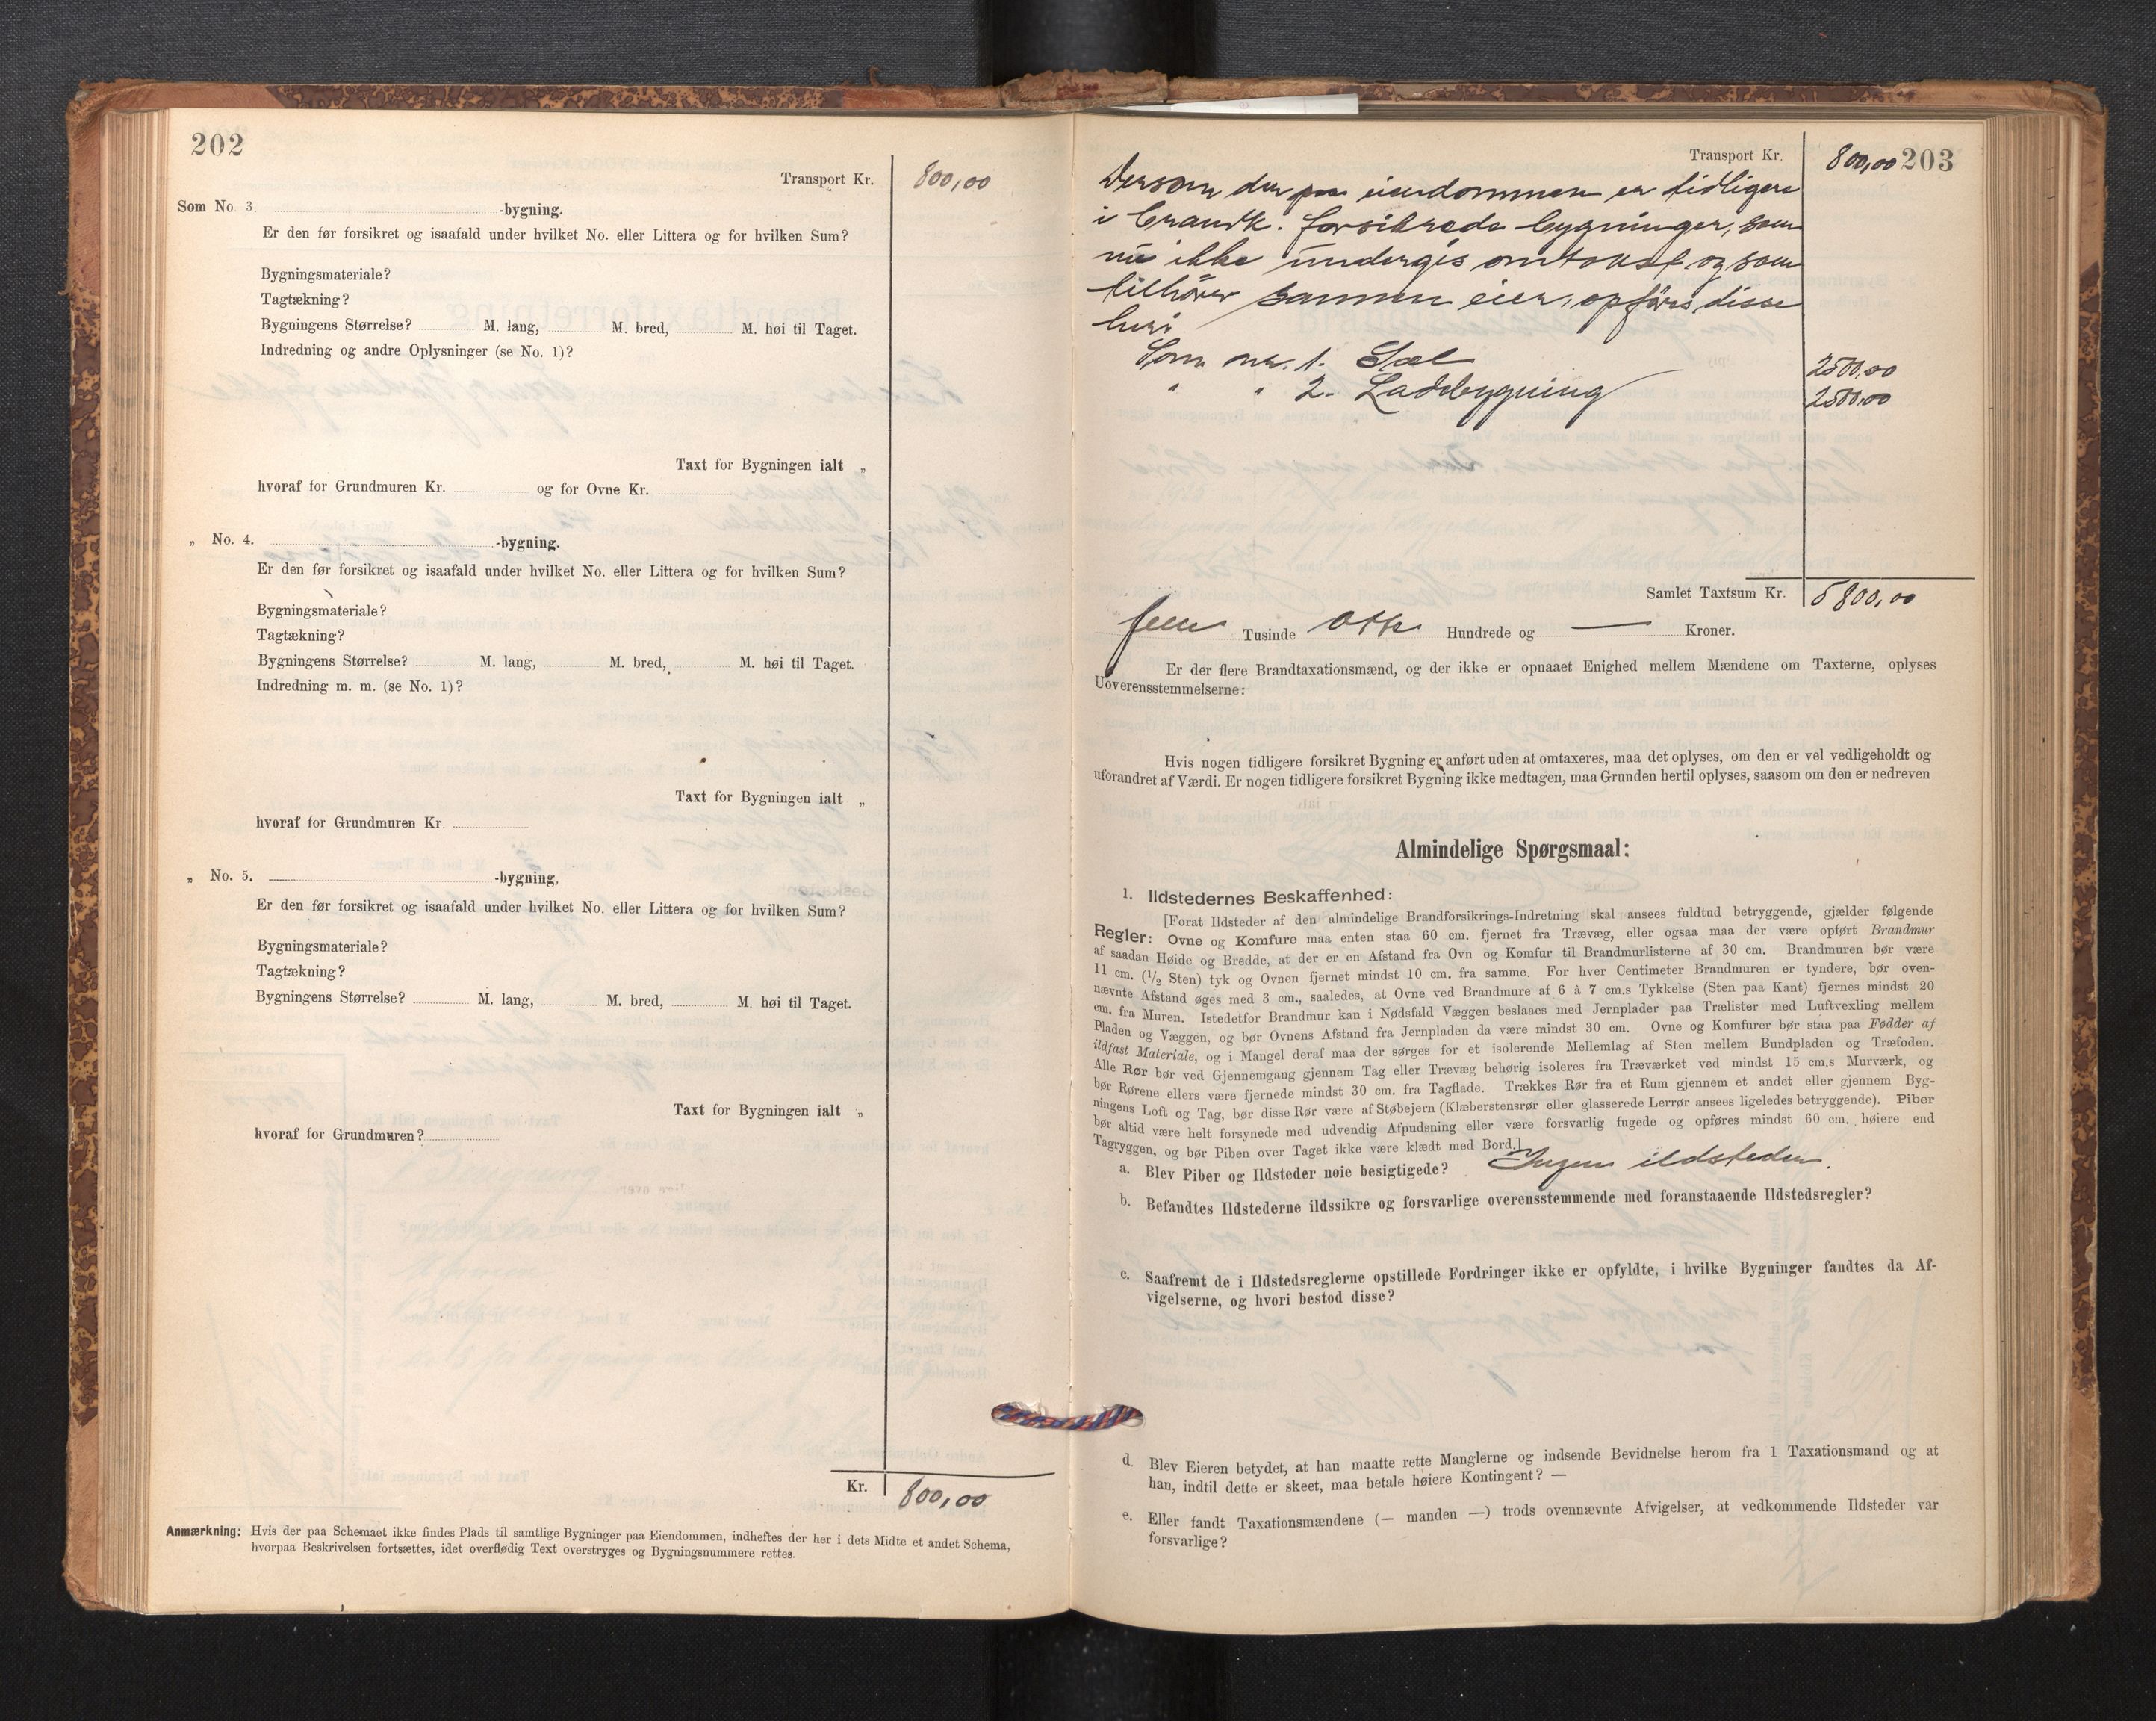 202
Transport Kr. 800,00
Som No. 3. -bygning.
Er den før forsikret og isaafald under hvilket No. eller Littera og for hvilken Sum?
Bygningsmateriale?
Tagtækning?
Bygningens Størrelse? M. lang, M. bred, M. høi til Taget.
Indredning og andre Oplysninger (se No. 1)?
Taxt for Bygningen ialt „
hvoraf for Grundmuren Kr. og for Ovne Kr.
„ No. 4. -bygning.
Er den før forsikret og isaafald under hvilket No. eller Littera og for hvilken Sum?
Bygningsmateriale?
Tagtækning?
Bygningens Størrelse? M. lang, M. bred, M. høi til Taget.
Indredning m. m. (se No. 1)?
Taxt for Bygningen ialt „
hvoraf for Grundmuren Kr.
„ No. 5. -bygning,
Er den før forsikret og isaafald under hvilket No. eller Littera og for hvilken Sum?
Bygningsmateriale?
Tagtækning?
Bygningens Størrelse? M. lang, M. bred, M. høi til Taget.
Taxt for Bygningen ialt „
hvoraf for Grundmuren?
Kr. 800,00
Anmærkning: Hvis der paa Schemaet ikke findes Plads til samtlige Bygninger paa Eiendommen, indheftes der her i dets Midte et andet Schema,
hvorpaa Beskrivelsen fortsættes, idet overflødig Text overstryges og Bygningsnummere rettes.
203
Transport Kr. 800,00
Dersom der paa eiendommen er tidligere
i brandk. forsikrede bygninger, som
nu ikke undergis omtakst og som
tilhører samme eier, opføres disse
heri
Som nr. 1. Stal 2500,00
" " 2. Ladebygning 2500,00
Samlet Taxtsum Kr. 5800,00
fem Tusinde otte Hundrede og — Kroner.
Er der flere Brandtaxationsmænd, og der ikke er opnaaet Enighed mellem Mændene om Taxterne, oplyses
Uoverensstemmelserne:
Hvis nogen tidligere forsikret Bygning er anført uden at omtaxeres, maa det oplyses, om den er vel vedligeholdt og
uforandret af Værdi. Er nogen tidligere forsikret Bygning ikke medtagen, maa Grunden hertil oplyses, saasom om den er nedreven
Almindelige Spørgsmaal:
1. Ildstedernes Beskaffenhed:
[Forat Ildsteder af den almindelige Brandforsikrings-Indretning skal ansees fuldtud betryggende, gjælder følgende
Regler: Ovne og Komfure maa enten staa 60 cm. fjernet fra Trævæg, eller ogsaa maa der være opført Brandmur
af saadan Høide og Bredde, at der er en Afstand fra Ovn og Komfur til Brandmurlisterne af 30 cm. Brandmuren bør være
11 cm. (1/2 Sten) tyk og Ovnen fjernet mindst 10 cm. fra samme. For hver Centimeter Brandmuren er tyndere, bør oven-
nævnte Afstand øges med 3 cm., saaledes, at Ovne ved Brandmure af 6 à 7 cm.s Tykkelse (Sten paa Kant) fjernes mindst 20
cm. fra Muren. Istedetfor Brandmur kan i Nødsfald Væggen beslaaes med Jernplader paa Trælister med Luftvexling mellem
Pladen og Væggen, og bør Ovnens Afstand fra Jernpladen da være mindst 30 cm. Ovne og Komfurer bør staa paa Fødder af
ildfast Materiale, og i Mangel deraf maa der sørges for et isolerende Mellemlag af Sten mellem Bundpladen og Træfoden.
Alle Rør bør ved Gjennemgang gjennem Tag eller Trævæg behørig isoleres fra Træværket ved mindst 15 cm.s Murværk, og
bør Rørene ellers være fjernede mindst 30 cm. fra Tagflade. Trækkes Rør fra et Rum gjennem et andet eller gjennem Byg-
ningens Loft og Tag, bør disse Rør være af Støbejern (Klæberstensrør eller glasserede Lerrør ansees ligeledes betryggende). Piber
bør altid være helt forsynede med udvendig Afpudsning eller være forsvarlig fugede og opføres mindst 60 cm. høiere end
Tagryggen, og bør Piben over Taget ikke være klædt med Bord.]
a. Blev Piber og Ildsteder nøie besigtigede? Ingen ildsteder.
b. Befandtes Ildstederne ildssikre og forsvarlige overensstemmende med foranstaaende Ildstedsregler?
c. Saafremt de i Ildstedsreglerne opstillede Fordringer ikke er opfyldte, i hvilke Bygninger fandtes da Af-
vigelserne, og hvori bestod disse?
d. Blev Eieren betydet, at han maatte rette Manglerne og indsende Bevidnelse herom fra 1 Taxationsmand og at
han, indtil dette er skeet, maa betale høiere Kontingent? —
e. Eller fandt Taxationsmændene (— manden —) trods ovennævnte Afvigelser, at vedkommende Ildsteder var
forsvarlige?